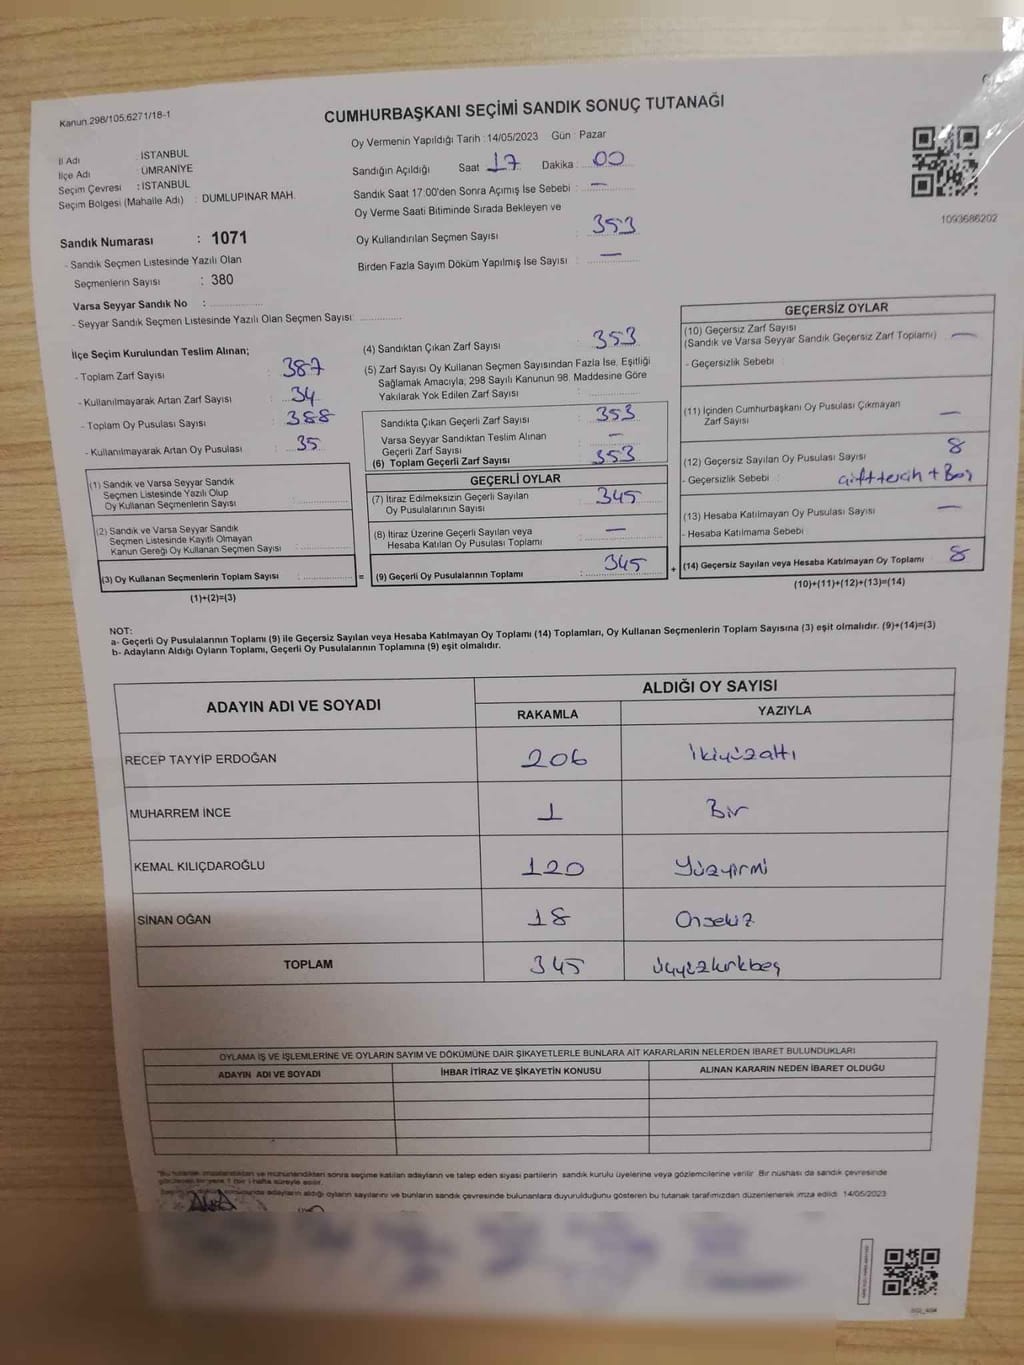 Kanun.298/105.6271/18-1
CUMHURBAŞKANI SEÇİMİ SANDIK SONUÇ TUTANAĞI
Oy Vermenin Yapıldığı Tarih : 14/05/2023 Gün : Pazar
İl Adı : İSTANBUL
İlçe Adı : ÜMRANİYE
Seçim Çevresi : İSTANBUL
Seçim Bölgesi (Mahalle Adı) : DUMLUPINAR MAH.
Sandık Numarası : 1071
- Sandık Seçmen Listesinde Yazılı Olan
Seçmenlerin Sayısı : 380
Varsa Seyyar Sandık No :
- Seyyar Sandık Seçmen Listesinde Yazılı Olan Seçmen Sayısı:
Sandığın Açıldığı Saat 17 Dakika : 00
Sandık Saat 17:00'den Sonra Açımış İse Sebebi : —
Oy Verme Saati Bitiminde Sırada Bekleyen ve
Oy Kullandırılan Seçmen Sayısı : 353
Birden Fazla Sayım Döküm Yapılmış İse Sayısı : —
1093686202
İlçe Seçim Kurulundan Teslim Alınan;
- Toplam Zarf Sayısı : 387
- Kullanılmayarak Artan Zarf Sayısı : 34
- Toplam Oy Pusulası Sayısı : 388
- Kullanılmayarak Artan Oy Pusulası : 35
(1) Sandık ve Varsa Seyyar Sandık
Seçmen Listesinde Yazılı Olup
Oy Kullanan Seçmenlerin Sayısı :
(2) Sandık ve Varsa Seyyar Sandık
Seçmen Listesinde Kayıtlı Olmayan
Kanun Gereği Oy Kullanan Seçmen Sayısı :
(3) Oy Kullanan Seçmenlerin Toplam Sayısı :
(1)+(2)=(3)
(4) Sandıktan Çıkan Zarf Sayısı : 353
(5) Zarf Sayısı Oy Kullanan Seçmen Sayısından Fazla İse, Eşitliği
Sağlamak Amacıyla, 298 Sayılı Kanunun 98. Maddesine Göre
Yakılarak Yok Edilen Zarf Sayısı :
Sandıkta Çıkan Geçerli Zarf Sayısı : 353
Varsa Seyyar Sandıktan Teslim Alınan
Geçerli Zarf Sayısı : —
(6) Toplam Geçerli Zarf Sayısı : 353
GEÇERLİ OYLAR
(7) İtiraz Edilmeksizin Geçerli Sayılan
Oy Pusulalarının Sayısı : 345
(8) İtiraz Üzerine Geçerli Sayılan veya
Hesaba Katılan Oy Pusulası Toplamı : —
= (9) Geçerli Oy Pusulalarının Toplamı : 345
GEÇERSİZ OYLAR
(10) Geçersiz Zarf Sayısı
(Sandık ve Varsa Seyyar Sandık Geçersiz Zarf Toplamı) : —
- Geçersizlik Sebebi :
(11) İçinden Cumhurbaşkanı Oy Pusulası Çıkmayan
Zarf Sayısı : —
(12) Geçersiz Sayılan Oy Pusulası Sayısı : 8
- Geçersizlik Sebebi : çift tercih + Boş
(13) Hesaba Katılmayan Oy Pusulası Sayısı : —
- Hesaba Katılmama Sebebi :
+ (14) Geçersiz Sayılan veya Hesaba Katılmayan Oy Toplamı : 8
(10)+(11)+(12)+(13)=(14)
NOT:
a- Geçerli Oy Pusulalarının Toplamı (9) ile Geçersiz Sayılan veya Hesaba Katılmayan Oy Toplamı (14) Toplamları, Oy Kullanan Seçmenlerin Toplam Sayısına (3) eşit olmalıdır. (9)+(14)=(3)
b- Adayların Aldığı Oyların Toplamı, Geçerli Oy Pusulalarının Toplamına (9) eşit olmalıdır.
ADAYIN ADI VE SOYADI ALDIĞI OY SAYISI
RAKAMLA YAZIYLA
RECEP TAYYİP ERDOĞAN 206 ikiyüzaltı
MUHARREM İNCE 1 Bir
KEMAL KILIÇDAROĞLU 120 Yüzyirmi
SİNAN OĞAN 18 Onsekiz
TOPLAM 345 üçyüzkırkbeş
OYLAMA İŞ VE İŞLEMLERİNE VE OYLARIN SAYIM VE DÖKÜMÜNE DAİR ŞİKAYETLERLE BUNLARA AİT KARARLARIN NELERDEN İBARET BULUNDUKLARI
ADAYIN ADI VE SOYADI İHBAR İTİRAZ VE ŞİKAYETİN KONUSU ALINAN KARARIN NEDEN İBARET OLDUĞU
"Bu tutanak imzalandıktan ve mühürlendikten sonra seçime katılan adayların ve talep eden siyasi partilerin sandık kurulu üyelerine veya gözlemcilerine verilir. Bir nüshası da sandık çevresinde
bir yere 1 (bir) hafta süreyle asılır.
adayların aldığı oyların sayılarını ve bunların sandık çevresinde bulunanlara duyurulduğunu gösteren bu tutanak tarafımızdan düzenlenerek imza edildi. 14/05/2023